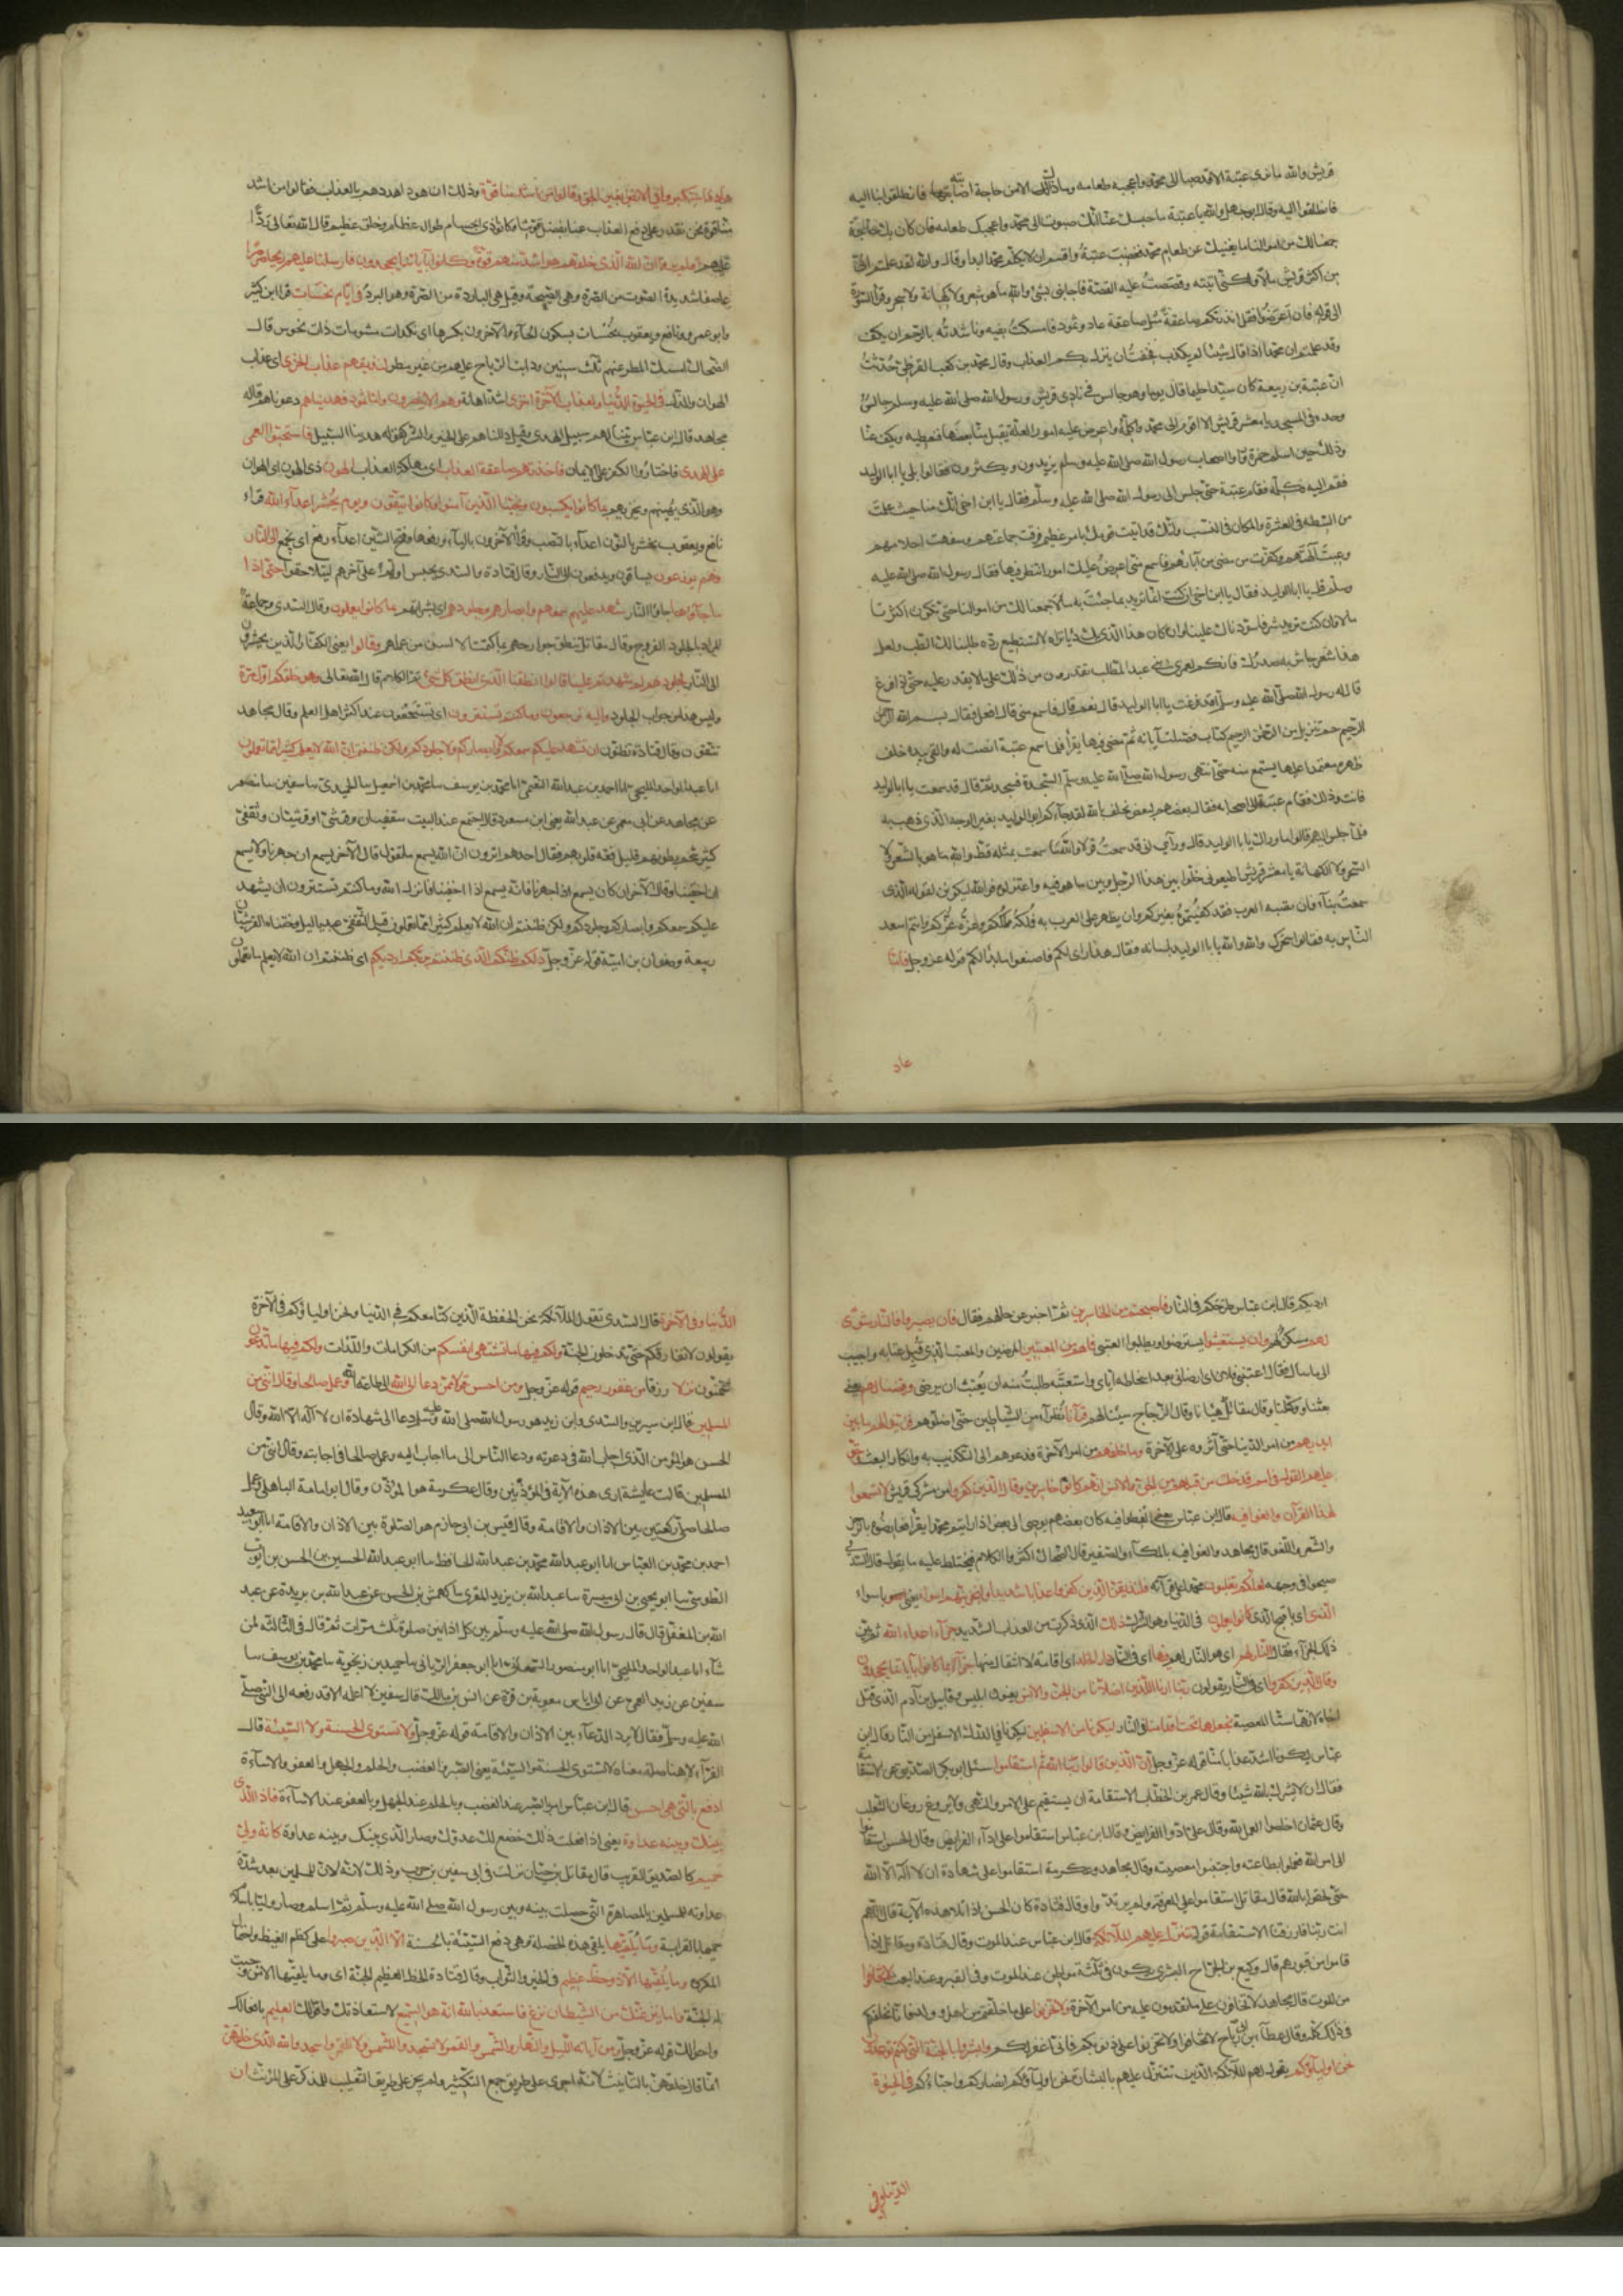 قريش والله ما نرى عتبة الا قد صبا الى محمد واعجبه طعامه وما ذلك الا من حاجة اصابته فانطلقوا بنا اليه
فانطلقوا اليه وقال ابو جهل والله يا عتبة ما حبسك عنا الا انك صبوت الى محمد واعجبك طعامه فان كان بك حاجة
جمعنا لك من اموالنا ما يغنيك عن طعام محمد فغضب عتبة واقسم ان لا يكلم محمدا ابدا وقال والله لقد علمتم اني
من اكثر قريش مالا ولكني اتيته وقصصت عليه القصة فاجابني بشئ والله ما هو بشعر ولا كهانة ولا سحر وقرأ السورة
الى قوله فان اعرضوا فقل انذرتكم صاعقة مثل صاعقة عاد وثمود فامسكت بفيه وناشدته بالرحم ان يكف
وقد علمتم ان محمدا اذا قال شيئا لم يكذب فخفت ان ينزل بكم العذاب وقال محمد بن كعب القرظي حدثت
ان عتبة بن ربيعة كان سيدا حليما قال يوما وهو جالس في نادى قريش ورسول الله صلى الله عليه وسلم جالس
وحده في المسجد يا معشر قريش الا اقوم الى محمد واكلمه واعرض عليه امورا لعله يقبل منا بعضها فنعطيه ويكف عنا
وذلك حين اسلم حمزة ورأوا اصحاب رسول الله صلى الله عليه وسلم يزيدون ويكثرون فقالوا بلى يا ابا الوليد
فقم اليه فكلمه فقام عتبة حتى جلس الى رسول الله صلى الله عليه وسلم فقال يا ابن اخى انك منا حيث علمت
من البسطة في العشيرة والمكان في النسب وانك قد اتيت قومك بامر عظيم فرقت جماعتهم وسفهت احلامهم
وعبت آلهتهم وكفرت من مضى من آبائهم فاسمع منى اعرض عليك امورا تنظر فيها فقال رسول الله صلى الله عليه
وسلم قل يا ابا الوليد فقال يا ابن اخى ان كنت انما تريد بما جئت به مالا جمعنا لك من اموالنا حتى تكون اكثرنا
مالا وان كنت تريد شرفا سودناك علينا وان كان هذا الذى بك رئيا تراه لا تستطيع رده طلبنا لك الطب ولعل
هذا شعر جاش به صدرك فانكم لعمرى بنى عبد المطلب تقدرون من ذلك على ما لا يقدر عليه حتى اذا فرغ
قال له رسول الله صلى الله عليه وسلم اقد فرغت يا ابا الوليد قال نعم قال فاسمع منى قال افعل فقال بسم الله الرحمن
الرحيم حم تنزيل من الرحمن الرحيم كتاب فصلت آياته ثم مضى فيها يقرأ فلما سمع عتبة انصت له والقى يديه خلف
ظهره معتمدا عليها يستمع منه حتى انتهى رسول الله صلى الله عليه وسلم الى السجدة فسجد ثم قال قد سمعت يا ابا الوليد
فانت وذلك فقام عتبة الى اصحابه فقال بعضهم لبعض نحلف بالله لقد جاءكم ابو الوليد بغير الوجه الذى ذهب به
فلما جلس اليهم قالوا ما وراك يا ابا الوليد قال ورآئى انى قد سمعت قولا والله ما سمعت بمثله قط والله ما هو بالشعر ولا
السحر ولا الكهانة يا معشر قريش اطيعونى خلوا بين هذا الرجل وبين ما هو فيه واعتزلوه فوالله ليكونن لقوله الذى
سمعت نبأ فان تصبه العرب فقد كفيتموه بغيركم وان يظهر على العرب به فملكه ملككم وعزه عزكم وانتم اسعد
الناس به فقالوا سحرك والله يا ابا الوليد بلسانه فقال هذا رأى لكم فاصنعوا ما بدا لكم قوله عز وجل فاما
عاد
عاد فاستكبروا في الارض بغير الحق وقالوا من اشد منا قوة وذلك ان هودا هددهم بالعذاب فقالوا من اشد
منا قوة نحن نقدر على دفع العذاب عنا بفضل قوتنا وكانوا ذوى اجسام طوال عظام وخلق عظيم قال الله تعالى ردا
عليهم اولم يروا ان الله الذى خلقهم هو اشد منهم قوة وكانوا بآياتنا يجحدون فارسلنا عليهم ريحا صرصرا
عاصفا شديدة الصوت من الصرة وهى الصيحة وقيل هى الباردة من الصر وهو البرد في ايام نحسات قرأ ابن كثير
وابو عمرو ونافع ويعقوب نحسات بسكون الحاء والآخرون بكسرها اى نكدات مشومات ذات نحوس قال
الضحاك امسك المطر عنهم ثلث سنين ودامت الرياح عليهم من غير مطر لنذيقهم عذاب الخزى اى عذاب
الهوان والذل في الحيوة الدنيا ولعذاب الآخرة اخزى اشد اهانة وهم لا ينصرون واما ثمود فهديناهم دعوناهم قاله
مجاهد قال ابن عباس بينا لهم سبيل الهدى وقيل دللناهم على الخير والشر كقوله هديناه السبيل فاستحبوا العمى
على الهدى فاختاروا الكفر على الايمان فاخذتهم صاعقة العذاب اى مهلكة العذاب الهون ذى الهون اى الهوان
وهو الذى يهينهم ويخزيهم بما كانوا يكسبون ونجينا الذين آمنوا وكانوا يتقون ويوم يحشر اعداء الله قرأ
نافع ويعقوب نحشر بالنون اعداء بالنصب وقرأ الآخرون بالياء ورفعها وفتح الشين اعداء رفع اى يجمع الى النار
فهم يوزعون يساقون ويدفعون الى النار وقال قتادة والسدى يحبس اولهم على آخرهم ليتلاحقوا حتى اذا
ما جاؤها جاؤا النار شهد عليهم سمعهم وابصارهم وجلودهم اى بشراتهم بما كانوا يعملون وقال السدى وجماعة
المراد بالجلود الفروج وقال مقاتل تنطق جوارحهم بما كتمت الالسن من عملهم وقالوا يعنى الكفار الذين يحشرون
الى النار لجلودهم لم شهدتم علينا قالوا انطقنا الله الذى انطق كل شئ تم الكلام قال الله تعالى وهو خلقكم اول مرة
وليس هذا من جواب الجلود واليه ترجعون وما كنتم تستترون اى تستخفون عند اكثر اهل العلم وقال مجاهد
تتقون وقال قتادة تظنون ان يشهد عليكم سمعكم ولا ابصاركم ولا جلودكم ولكن ظننتم ان الله لا يعلم كثيرا مما تعملون
انا عبد الواحد المليحى انا احمد بن عبد الله النعيمى انا محمد بن يوسف سا محمد بن اسمعيل سا الحميدى سا سفين سا منصور
عن مجاهد عن ابى معمر عن عبد الله يعنى ابن مسعود قال اجتمع عند البيت ثقفيان وقرشى او قرشيان وثقفى
كثير شحم بطونهم قليل فقه قلوبهم فقال احدهم اترون ان الله يسمع ما نقول قال الآخر يسمع ان جهرنا ولا يسمع
ان اخفينا وقال الآخر ان كان يسمع اذا جهرنا فانه يسمع اذا اخفينا فانزل الله وما كنتم تستترون ان يشهد
عليكم سمعكم ولا ابصاركم ولا جلودكم ولكن ظننتم ان الله لا يعلم كثيرا مما تعملون قيل الثقفى عبد ياليل وختناه القرشيان
ربيعة وصفوان بن امية قوله عز وجل ذلكم ظنكم الذى ظننتم بربكم ارديكم اى ظننتم ان الله لا يعلم ما تعملون
ارديكم قال ابن عباس طرحكم في النار فاصبحتم من الخاسرين ثم اخبر عن حالهم فقال فان يصبروا فالنار مثوى
لهم مسكن لهم وان يستعتبوا يسترضوا ويطلبوا العتبى فما هم من المعتبين المرضيين والمعتب الذى قبل عتابه واجيب
الى ما سأل يقال اعتبنى فلان اى ارضانى بعد اسخاطه اياى واستعتبته طلبت منه ان يعتب اى يرضى وقيضنا لهم يعنى
بعثنا ووكلنا وقال مقاتل هيأنا وقال الزجاج سببنا لهم قرناء نظراء من الشياطين حتى اضلوهم فزينوا لهم ما بين
ايديهم من امر الدنيا حتى آثروه على الآخرة وما خلفهم من امر الآخرة فدعوهم الى التكذيب به وانكار البعث وحق
عليهم القول في امم قد خلت من قبلهم من الجن والانس انهم كانوا خاسرين وقال الذين كفروا من مشركى قريش لا تسمعوا
لهذا القرآن والغوا فيه قال ابن عباس يعنى الغطوا فيه كان بعضهم يوصى الى بعض اذا رأيتم محمدا يقرأ فعارضوه بالرجز
والشعر واللغو قال مجاهد والغوا فيه بالمكاء والصفير قال الضحاك اكثروا الكلام فيختلط عليه ما يقول قال السدى
صيحوا في وجهه لعلكم تغلبون محمدا على قرآنه فلنذيقن الذين كفروا عذابا شديدا ولنجزينهم اسوأ يعنى باسوأ
الذى اى باقبح الذى كانوا يعملون في الدنيا وهو الشرك ذلك الذى ذكرت من العذاب الشديد جزاء اعداء الله ثم بين
ذلك الجزآء فقال النار لهم اى هو النار لهم فيها اى في النار دار الخلد اى اقامة لا انتقال منها جزاء بما كانوا بآياتنا يجحدون
وقال الذين كفروا اى في النار يقولون ربنا ارنا اللذين اضلانا من الجن والانس يعنون ابليس وقابيل بن آدم الذى قتل
اخاه لانهما سنا المعصية نجعلهما تحت اقدامنا في النار ليكونا من الاسفلين ليكونا في الدرك الاسفل من النار قال ابن
عباس ليكونا اشد عذابا منا قوله عز وجل ان الذين قالوا ربنا الله ثم استقاموا سئل ابو بكر الصديق عن الاستقامة
فقال ان لا تشرك بالله شيئا وقال عمر بن الخطاب الاستقامة ان يستقيم على الامر والنهى ولا يروغ روغان الثعلب
وقال عثمان اخلصوا العمل لله وقال على ادوا الفرايض وقال ابن عباس استقاموا على اداء الفرايض وقال الحسن استقاموا
الى امر الله فعملوا بطاعته واجتنبوا معصيته وقال مجاهد وعكرمة استقاموا على شهادة ان لا اله الا الله
حتى لحقوا بالله قال مقاتل استقاموا على المعرفة ولم يرتدوا وقال قتادة كان الحسن اذا تلا هذه الآية قال اللهم
انت ربنا فارزقنا الاستقامة قوله تتنزل عليهم الملائكة قال ابن عباس عند الموت وقال قتادة ومقاتل اذا
قاموا من قبورهم قال وكيع بن الجراح البشرى يكون في ثلثة مواطن عند الموت وفي القبر وعند البعث الا تخافوا
من الموت قال مجاهد لا تخافون على ما تقدمون عليه من امر الآخرة ولا تحزنوا على ما خلفتم من اهل وولد فانا نخلفكم
في ذلك كله وقال عطاء ابن ابى رباح لا تخافوا ولا تحزنوا على ذنوبكم فانى اغفرها لكم وابشروا بالجنة التى كنتم توعدون
نحن اولياؤكم يقول لهم الملائكة الذين تتنزل عليهم بالبشارة نحن اولياؤكم انصاركم واحباءكم في الحيوة
الدنيا وفى
الدنيا وفي الآخرة قال السدى تقول الملائكة نحن الحفظة الذين كنا معكم في الدنيا ونحن اولياؤكم في الآخرة
يقولون لا نفارقكم حتى تدخلون الجنة ولكم فيها ما تشتهى انفسكم من الكرامات واللذات ولكم فيها ما تدعون
تتمنون نزلا رزقا من غفور رحيم قوله عز وجل ومن احسن قولا ممن دعا الى الله الى طاعة الله وعمل صالحا وقال اننى من
المسلمين قال ابن سيرين والسدى وابن زيد هو رسول الله صلى الله عليه وسلم دعا الى شهادة ان لا اله الا الله وقال
الحسن هو المؤمن الذى اجاب الله في دعوته ودعا الناس الى ما اجاب اليه وعمل صالحا في اجابته وقال اننى من
المسلمين قالت عايشة ارى هذه الآية في المؤذنين وقال عكرمة هو المؤذن وقال ابو امامة الباهلى وعمل
صالحا صلى ركعتين بين الاذان والاقامة وقال قيس بن ابى حازم هو الصلوة بين الاذان والاقامة انا ابو سعيد
احمد بن محمد بن العباس انا ابو عبد الله محمد بن عبد الله الحافظ سا ابو عبد الله الحسين بن الحسن بن ايوب
الطوسى سا ابو يحيى بن ابى ميسرة سا عبد الله بن يزيد المقرى سا كهمش بن الحسن عن عبد الله بن بريدة عن عبد
الله بن المغفل قال قال رسول الله صلى الله عليه وسلم بين كل اذانين صلوة ثلث مرات ثم قال في الثالثة لمن
شاء انا عبد الواحد المليحى انا ابو منصور السمعانى انا ابو جعفر الريانى سا حميد بن زنجوية سا محمد بن يوسف سا
سفين عن زيد العمى عن ابى اياس معوية بن قرة عن انس بن مالك قال سفين لا اعلمه الا قد رفعه الى النبى صلى
الله عليه وسلم فقال لا يرد الدعاء بين الاذان والاقامة قوله عز وجل ولا تستوى الحسنة ولا السيئة قال
الفراء لا هنا صلة معناه لا تستوى الحسنة والسيئة يعنى الصبر والغضب والحلم والجهل والعفو والاساءة
ادفع بالتى هى احسن قال ابن عباس امر بالصبر عند الغضب وبالحلم عند الجهل وبالعفو عند الاساءة فاذا الذى
بينك وبينه عداوة يعنى اذا فعلت ذلك خضع لك عدوك وصار الذى بينك وبينه عداوة كانه ولى
حميم كالصديق القريب قال مقاتل بن حيان نزلت في ابى سفين بن حرب وذلك لانه لان للمسلمين بعد شدة
عداوته للمسلمين بالمصاهرة التى حصلت بينه وبين رسول الله صلى الله عليه وسلم ثم اسلم وصار وليا بالاسلام
حميما بالقرابة وما يلقيها يلقى هذه الخصلة وهى دفع السيئة بالحسنة الا الذين صبروا على كظم الغيظ واحتمال
المكروه وما يلقيها الا ذو حظ عظيم في الخير والثواب وقال قتادة الحظ العظيم الجنة اى وما يلقيها الا من وجبت
له الجنة واما ينزغنك من الشيطان نزغ فاستعذ بالله انه هو السميع لاستعاذتك واقوالك العليم بافعالك
واحوالك قوله عز وجل ومن آياته الليل والنهار والشمس والقمر لا تسجدوا للشمس ولا للقمر واسجدوا لله الذى خلقهن
انما قال خلقهن بالتأنيث لانه اجرى على طريق جمع التكثير ولم يجر على طريق التغليب للمذكر على المؤنث ان